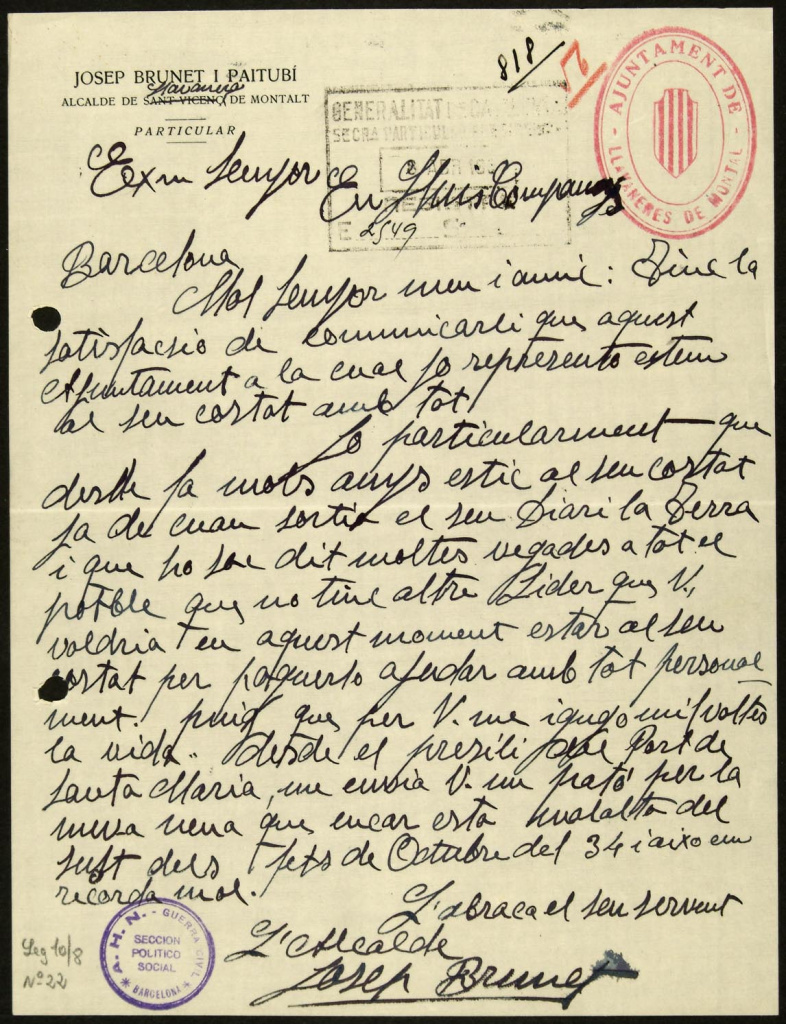 JOSEP BRUNET I PAITUBÍ
Llavaneres
ALCALDE DE SANT VICENÇ DE MONTALT
PARTICULAR
818
AJUNTAMENT DE
LLAVANERES DE MONTALT
GENERALITAT
2549
Exm Senyor En Lluis Companys
Barcelona
Mol Senyor meu i amic: Tinc la
satisfacsió de comunicarli que aquest
Ajuntament a la cual jo represento estem
al seu costat amb tot.
Jo particularment que
desde fa mols anys estic al seu costat
ja de cuan sortia el seu Diari la Terra
i que ho he dit moltes vegades a tot el
poble que no tinc altre Lider que V.,
voldria en aquest moment estar al seu
costat per poguerlo ajudar amb tot personal
ment. puig que per V. me jugo mil voltes
la vida. desde el presili del Port de
Santa Maria, me envia V. un pató per la
meva nena que encar está malalta del
sust dels fets de Octubre del 34 i aixo em
recorda mol.
L'abraça el seu servent
L'Alcalde
Josep Brunet
A.H.N. - GUERRA CIVIL
SECCION
POLITICO
SOCIAL
BARCELONA
Leg 10/8
Nº 22